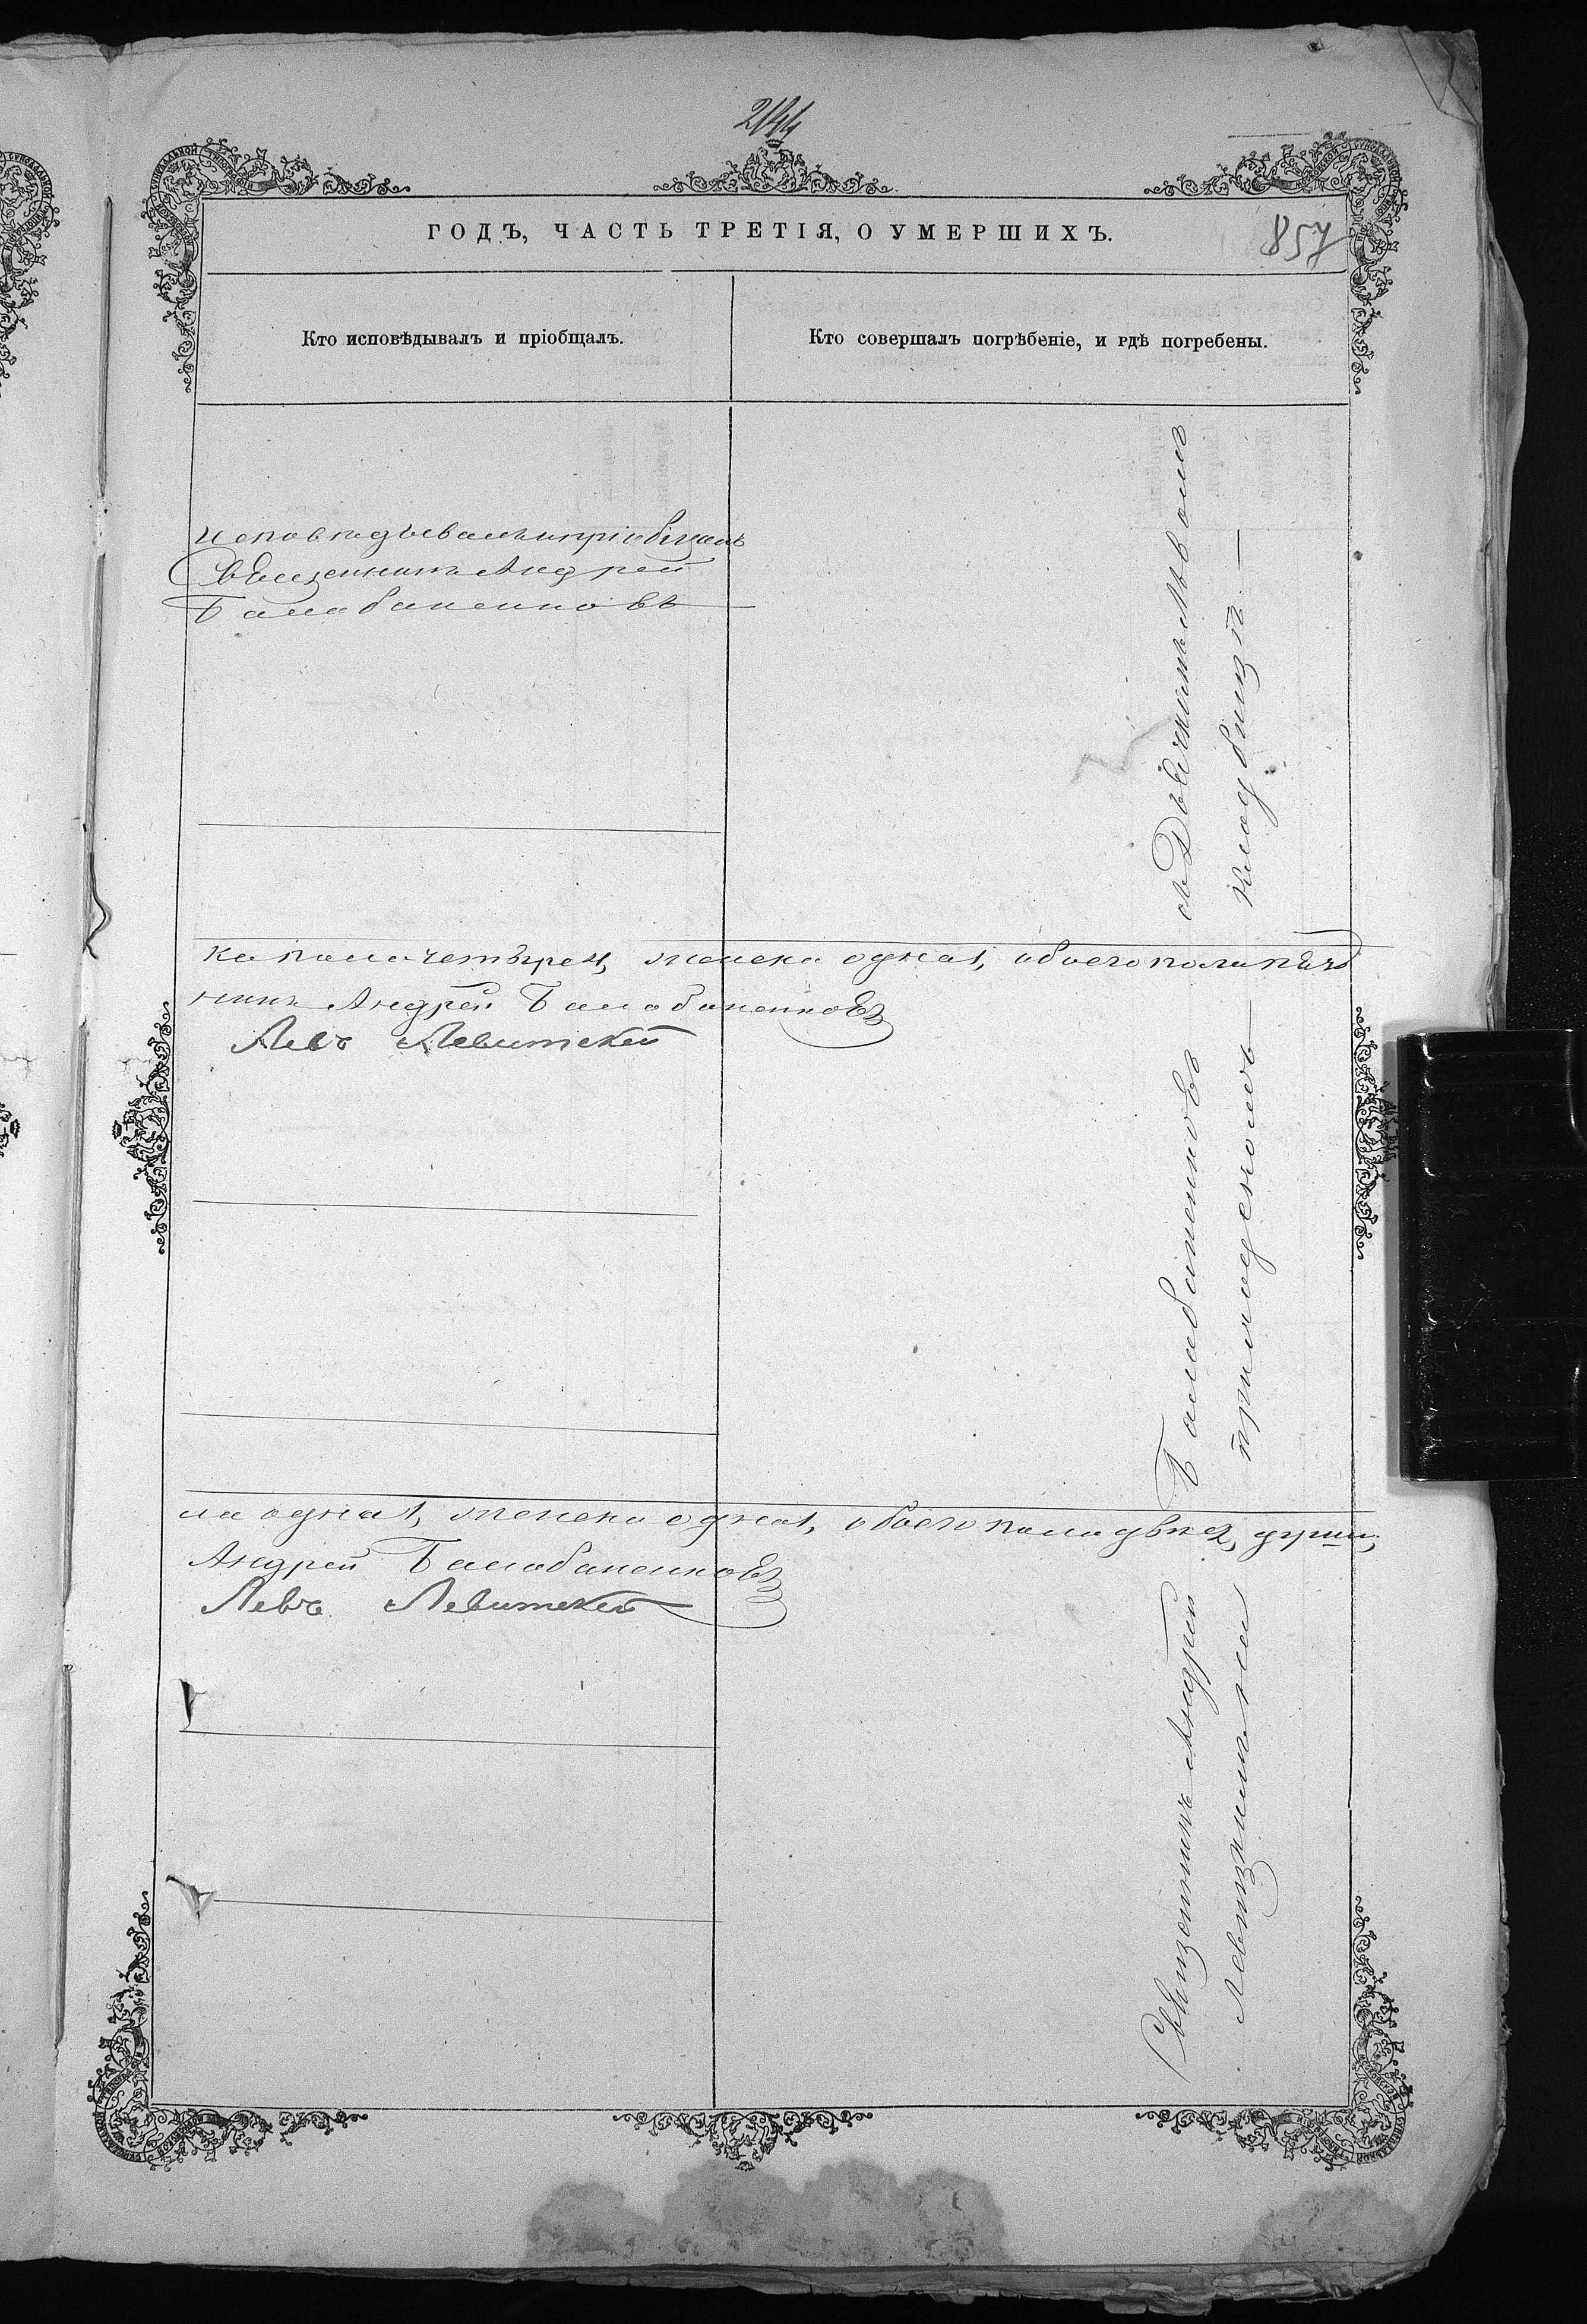 244
ГОДЪ, ЧАСТЬ ТРЕТІЯ, О УМЕРШИХЪ.
857
Кто исповѣдывалъ и пріобщалъ.
Кто совершалъ погрѣбеніе, и гдѣ погребены.
исповѣдывалъ и пріобщалъ
Священникъ Андрей
Балабаненковъ
каго пола четыре 4, женска одна 1, обоего пола пять 5
никъ Андрей Балабаненковъ
Левъ Левитскій
ла одна 1, женска одна 1, обоего пола двѣ 2, души,
Андрей Балабаненковъ
Левъ Левитскій
Священникъ Андрей Балабаненковъ съ
Левицкимъ на приходскомъ кладбищѣ